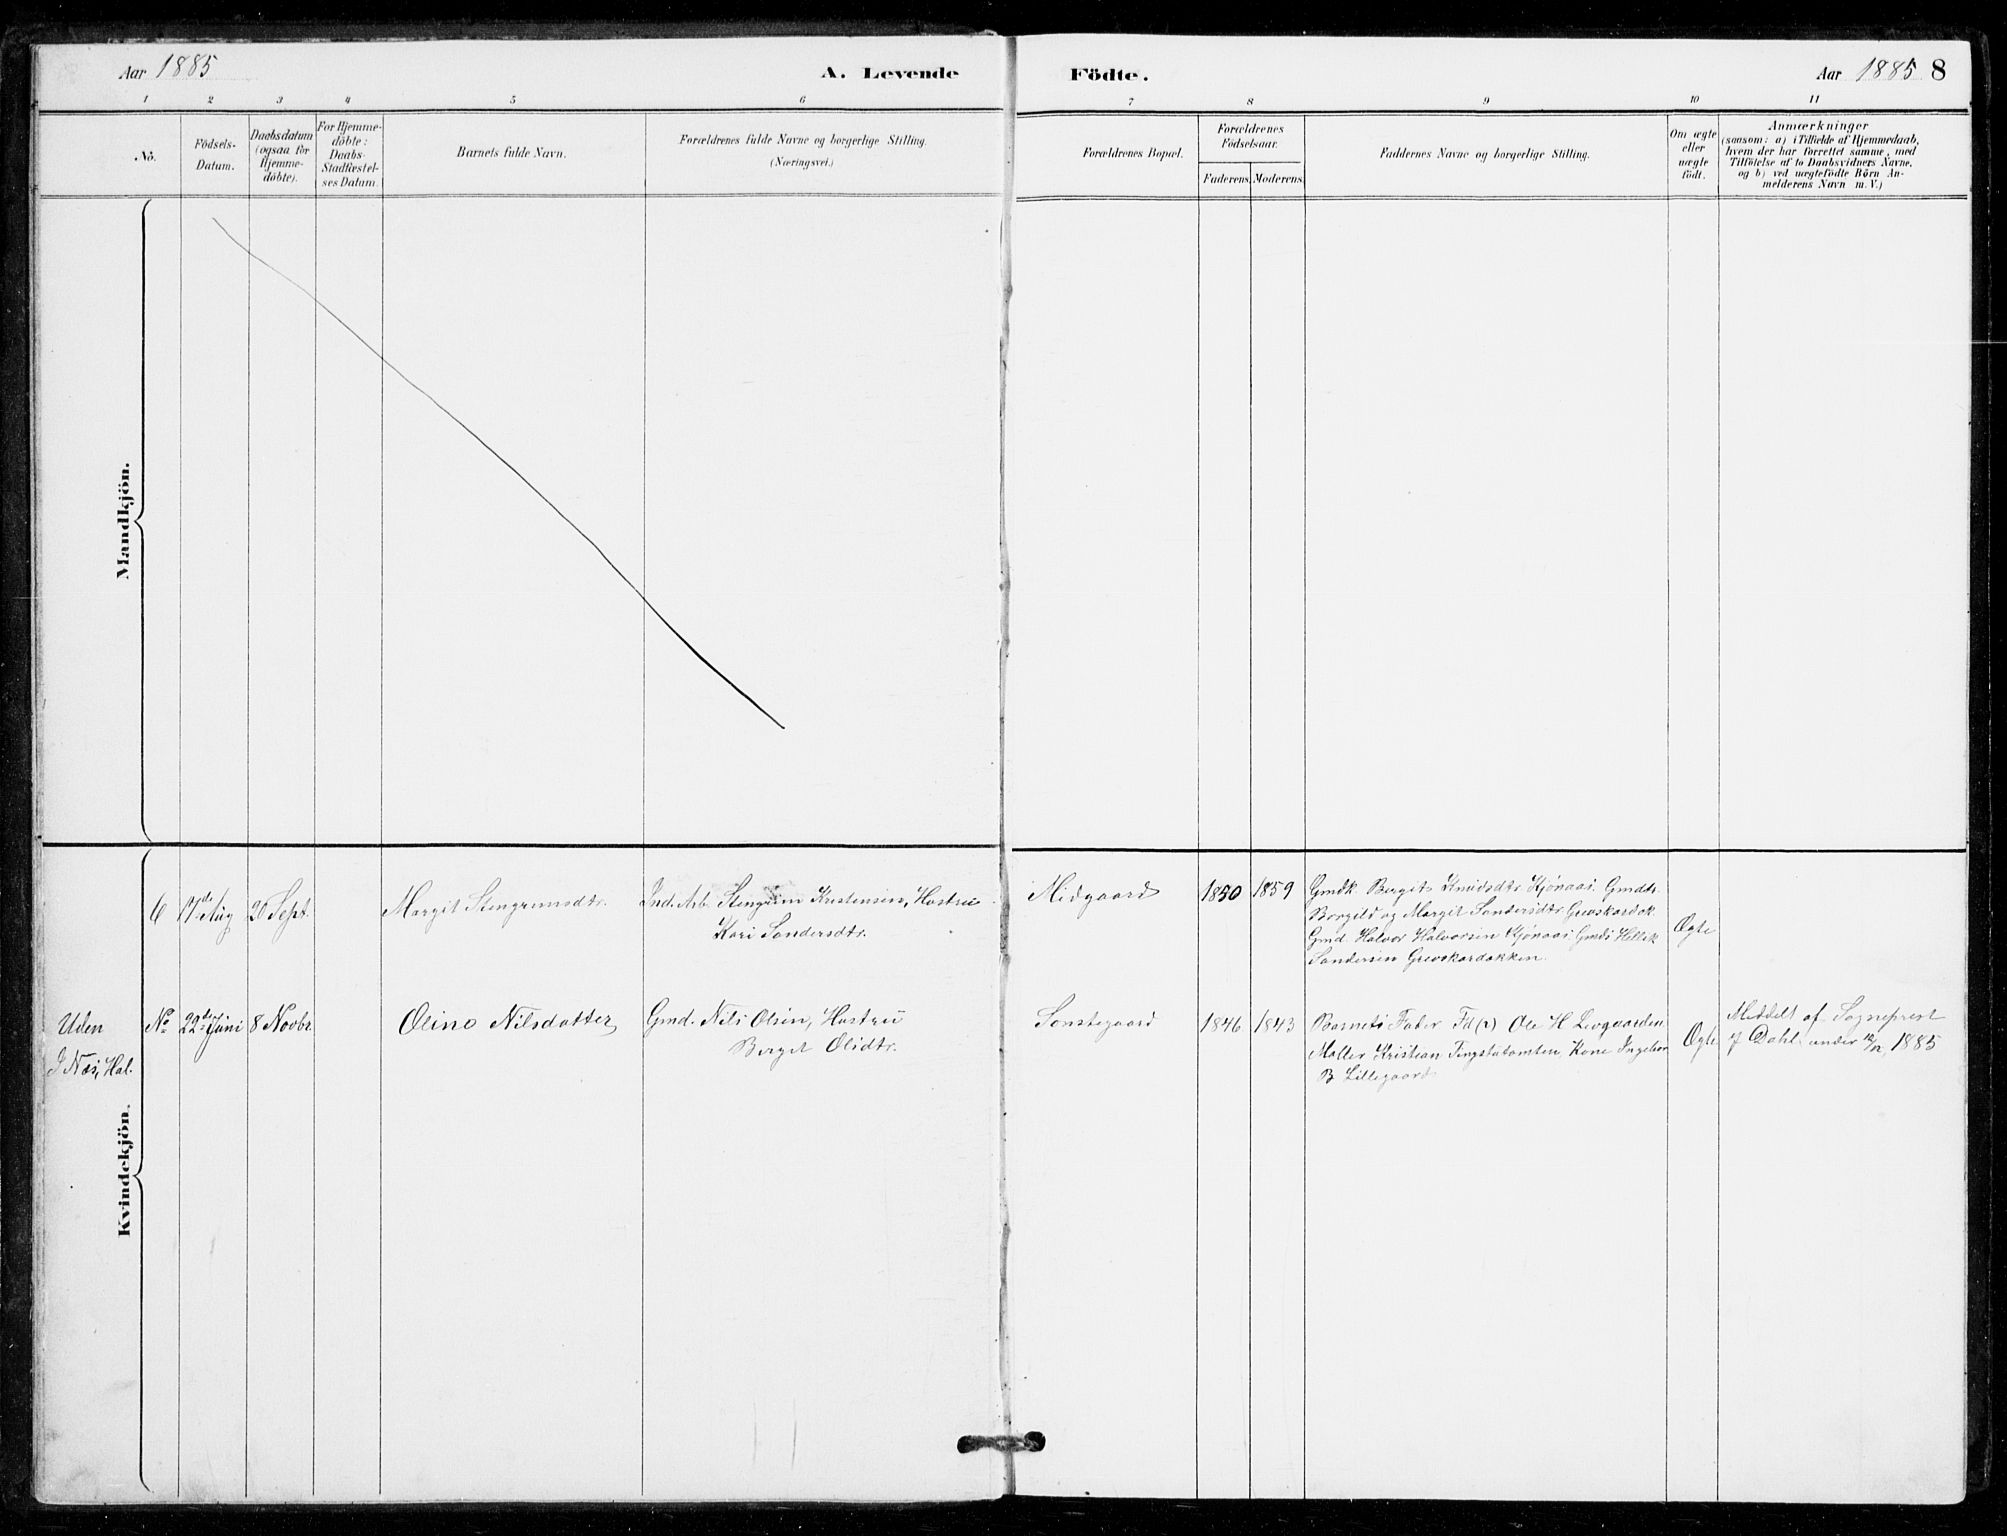 Aar 1885
A. Levende
Födte.
Aar 1885
8
1 2 3 4 5 6 7 8 9 10 11
No.
Födsels-
Datum.
Daabsdatum
(ogsaa for
Hjemme-
döbte).
For Hjemme-
döbte:
Daabs-
Stadfæstel-
ses Datum.
Barnets fulde Navn.
Forældrenes fulde Navne og borgerlige Stilling.
(Næringsvei.)
Forældrenes Bopæl.
Forældrenes
Födselsaar.
Faderens. Moderens.
Faddernes Navne og borgerlige Stilling.
Om ægte
eller
uægte
födt.
Anmærkninger
(saasom: a) i Tilfælde af Hjemmedaab,
hvem der har forrettet samme, med
Tilföielse af to Daabsvidners Navne,
og b) ved uægtefödte Börn An-
melderens Navn m. V.)
Mandkjön.
6 17de Aug 20 Sept. Margit Stengrimsdtr. Ind. Arb. Stengrim Kristensen, Hustru
Kari Sandersdtr.
Midgaard 1850 1859
Gmdk. Bergit Knudsdtr Kjønaas. Gmdtr.
Borgild og Margit Sandersdtr Grevskardok.
Gmd. Halvor Halvorsen Kjønaas. Gmds Hellik
Sandersen Grevskardokken.
Ægte
Uden No 22de Juni 8 Novbr. Olina Nilsdatter Gmd. Nils Olsen, Hustru
I Nes, Hal.
Berget Olsdtr.
Sønstegaard 1846 1843
Barnets Fader Fd() Ole H Levgaarden
Møller Kristian Tingstutomten, Kone Ingebor
B Lillegaard.
Ægte
Meddelt af Sogneprest
Dahl under 12/12 1885
Kvindekjön.